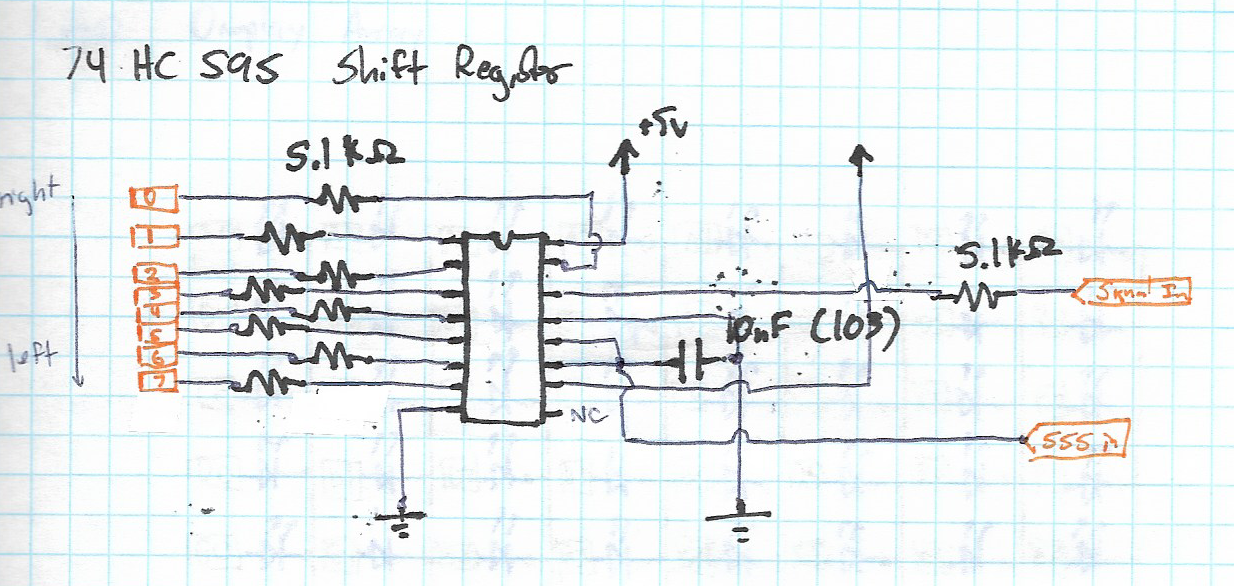 74 HC 595 Shift Register
+5v
5.1 kΩ
right
0
1
2
3
4
5
6
7
left
5.1kΩ
Signal In
10nF (103)
NC
555 in